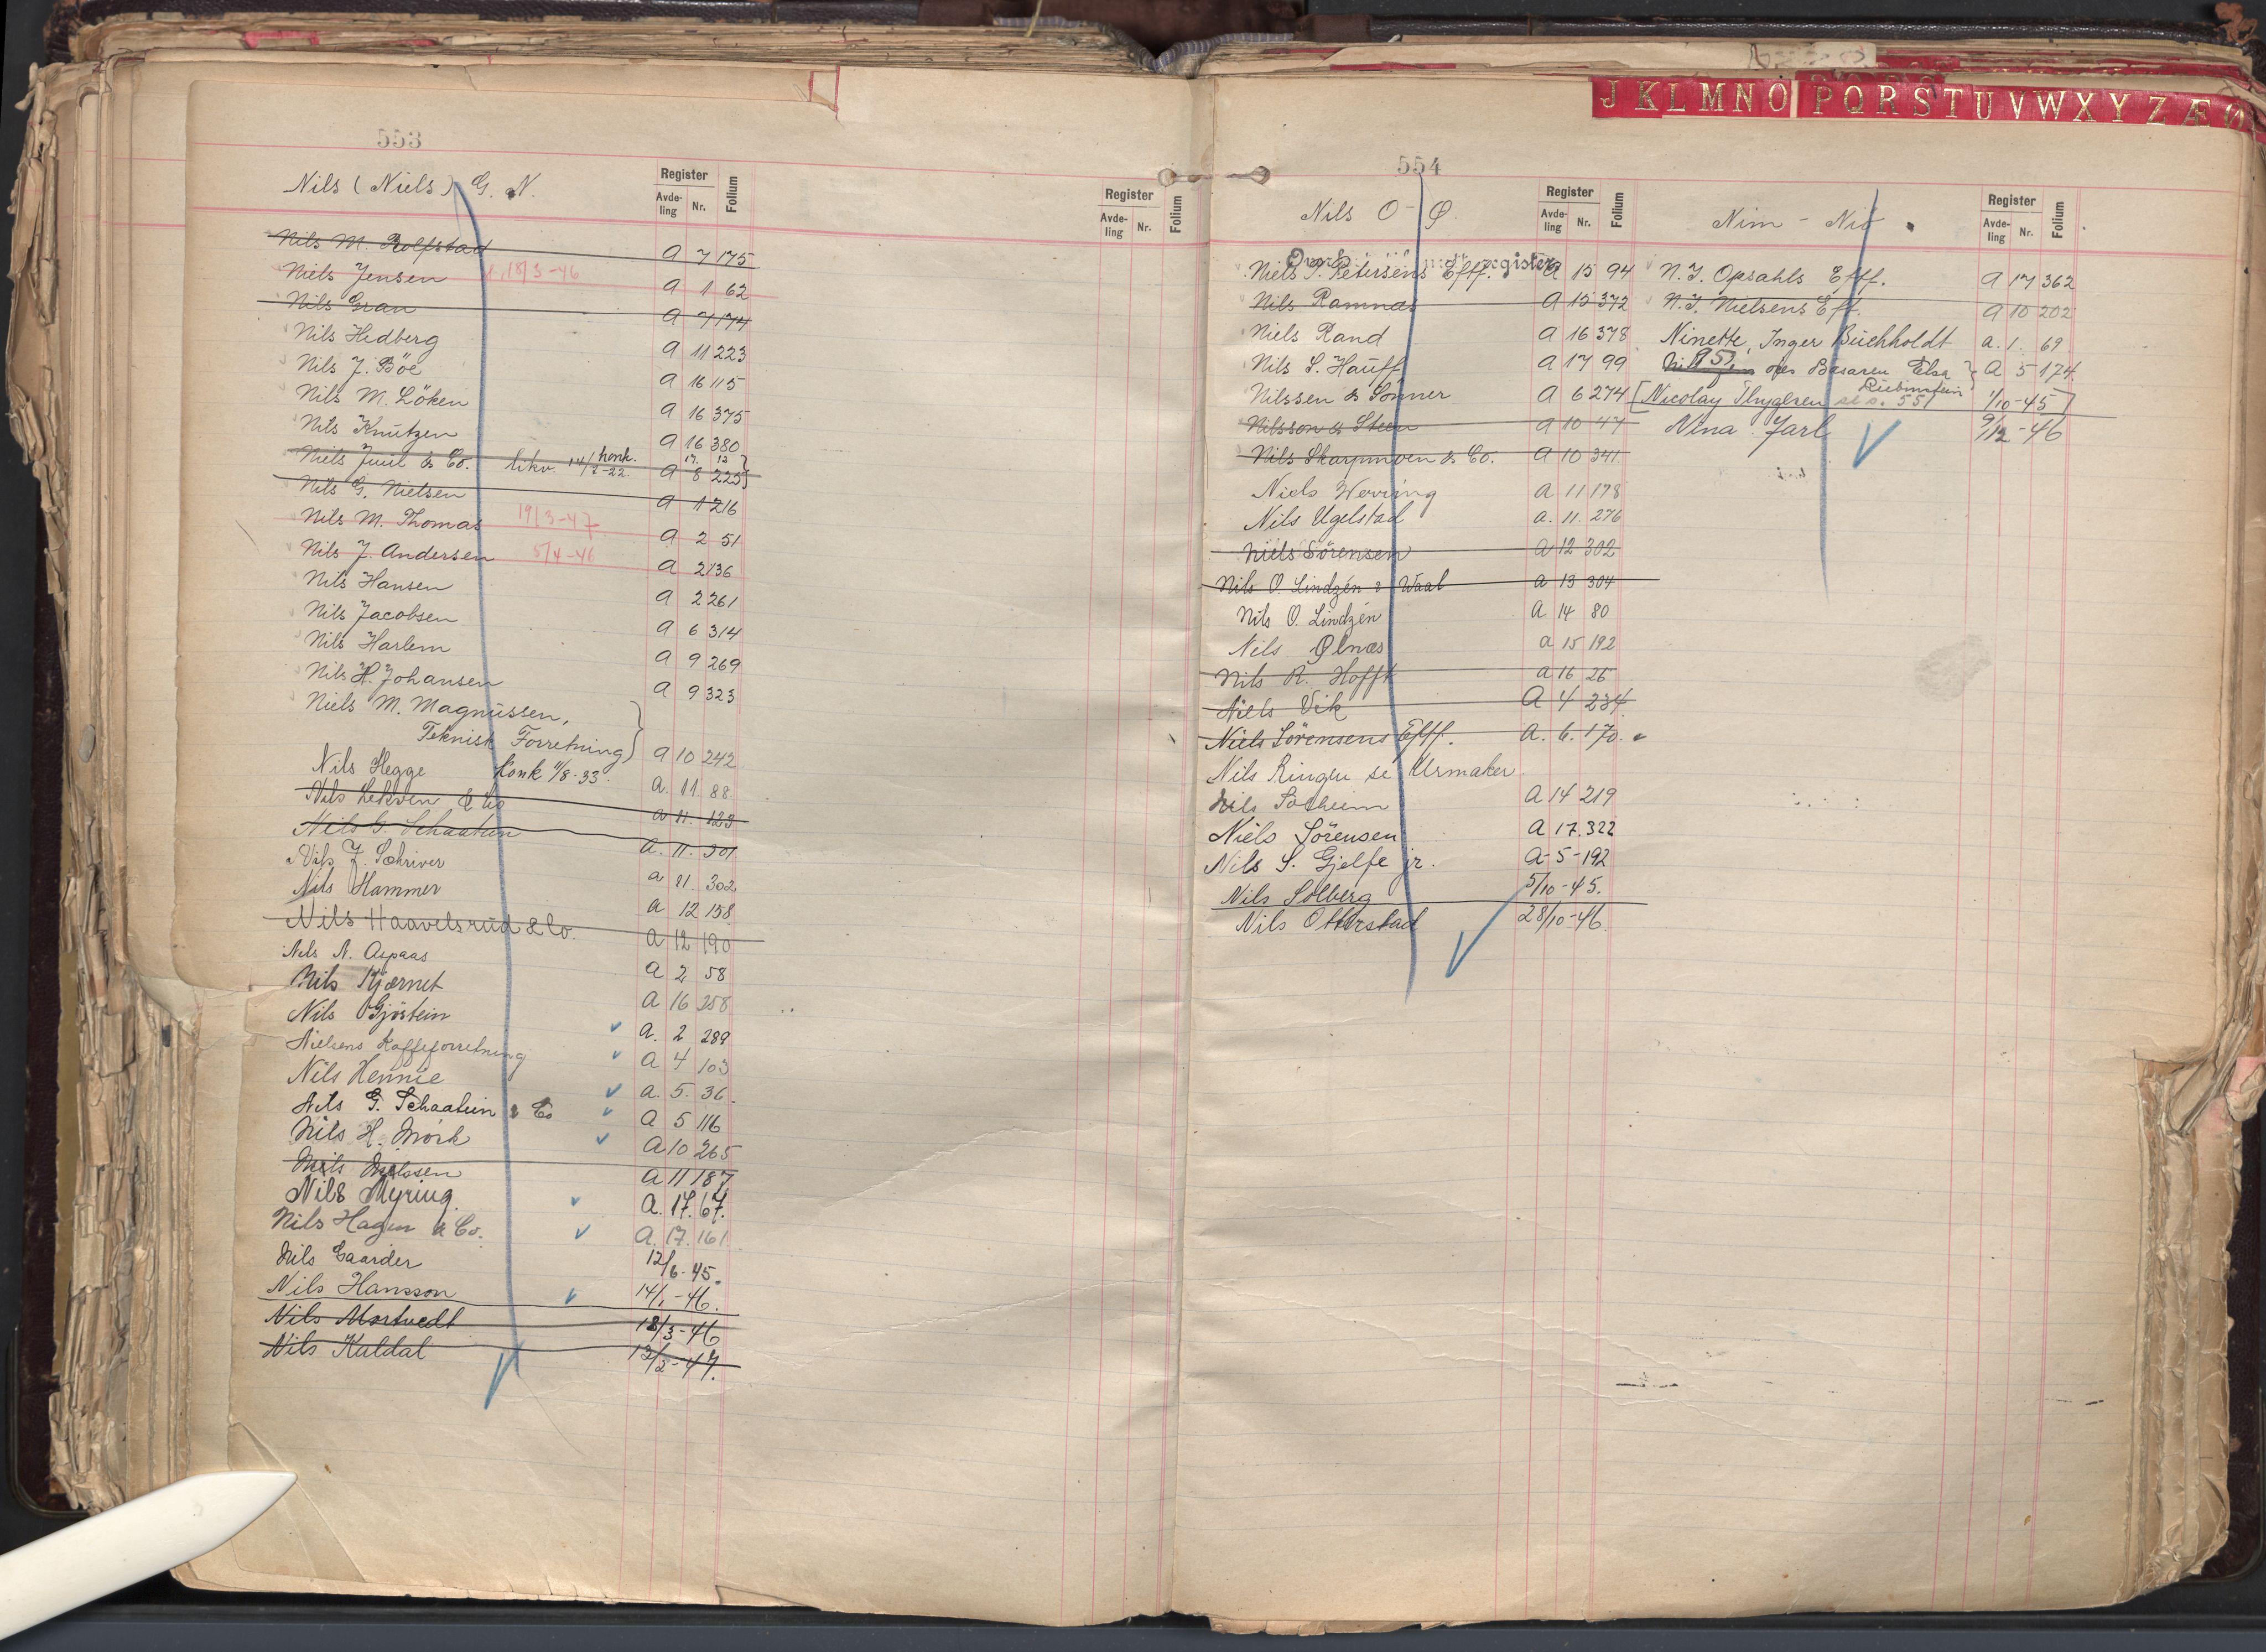 J K L M N O P Q R S T U V W X Y Z Æ Ø
553
Nils (Niels) G. N.
Register
Avde-ling Nr. Folium
Register
Avde-ling Nr. Folium
Nils M. Rolfstad A 7 175
Niels Jensen 18/3-46 A 1 62
Nils Gran A 7 174
Nils Hedberg A 11 223
Nils J. Böe A 16 115
Nils M. Löken A 16 375
Nils Knutzen A 16 380
Niels Juul & Co. likv. 14/2-22. konk. 17. 12 A 8 225
Nils G. Nielsen A 1 216
Nils M. Thomas 19/3-47 A 2 51
Nils J. Andersen 5/4-46 A 2 136
Nils Hansen A 2 261
Nils Jacobsen A 6 314
Nils Harlem A 9 269
Nils H. Johansen A 9 323
Niels M. Magnussen,
Teknisk Forretning A 10 242
Nils Hegge Konk 11/8-33. A. 11 88
Nils Lekven & Co A 11. 123
Nils G. Schaatun A. 11. 301
Nils J. Schriver A 11. 302
Nils Hammer A 12 158
Nils Haavelsrud & Co. A 12 190
Nils N. Aspaas A 2 58
Nils Kjærnet A 16 258
Nils Gjöstein A. 2 289
Nielsens Kaffeforretning A 4 103
Nils Hennie A. 5. 36.
Nils G. Schaatun & Co A 5 116
Nils H. Mörk A 10 265
Nils Nilssen A 11 187
Nils Myring. A. 17. 67.
Nils Hagen & Co. A. 17. 161
Nils Gaarder 12/6-45.
Nils Hansson 14/1-46.
Nils Mortvedt 18/3-46
Nils Kuldal 13/2-47.
554
Nils O-Ø.
Register
Avde-ling Nr. Folium
Niels S. Petersens Eftf. A 15 94
Nils Ramnæs A 15 372
Niels Rand A 16 378
Nils S. Hauff A 17 99
Nilssen & Sönner A 6 274
Nilsson & Steen A 10 47
Nils Skarpmoen & Co. A 10 341
Niels Werring A 11 178
Nils Ugelstad A. 11. 276
Niels Sörensen A 12 302
Nils O. Lindzén & Waal A 13 304
Nils O. Lindzén A 14 80
Nils Ølnæs A 15 192
Nils R. Hofft A 16 26
Niels Vik A 4 234
Niels Sörensens Eftf. A. 6. 170.
Nils Ringen se Urmaker
Nils Solheim A 14 219
Niels Sörensen A 17. 322
Nils S. Gjelfe jr. A-5-192
Nils Solberg 5/10-45.
Nils Otterstad 28/10-46.
Nim - Niö
Register
Avde-ling Nr. Folium
N. J. Opsahls Eftf. A 17 362
N. J. Nielsens Eff. A 10 202
Ninette, Inger Buchholdt A. 1. 69
Basaren Elsa Rubinstein A 5 174
[Nicolay Thygesen se s. 551 1/10-45]
Nina Jarl 9/12-46